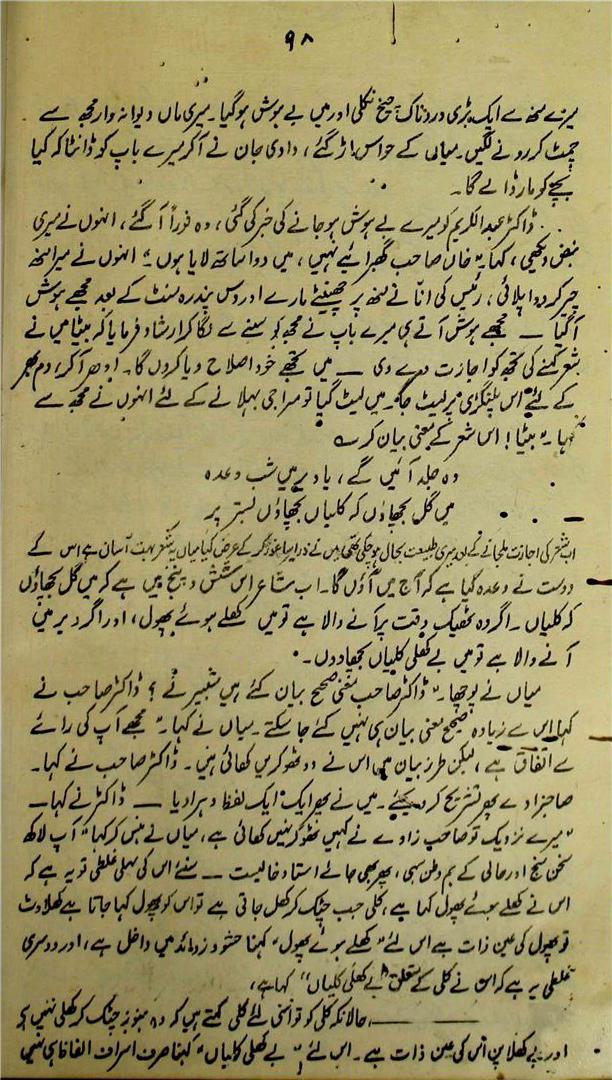 ۹۸
میرے منھ سے ایک بڑی دردناک چیخ نکلی اور میں بے ہوش ہوگیا۔ میری ماں دیوانہ وار مجھ سے
چمٹ کر رونے لگیں۔ میاں کے حواس اڑ گئے، دادی جان نے آکر میرے باپ کو ڈانٹا کہ کیا
بچے کو مار ڈالے گا۔
ڈاکٹر عبدالکریم کو میرے بے ہوش ہوجانے کی خبر کی گئی، وہ فوراً آگئے، انہوں نے میری
نبض دیکھی، کہا "خان صاحب گھبرائیے نہیں، میں دوا ساتھ لایا ہوں" انہوں نے میرا منھ
چیر کر دوا پلائی، رئیس کی انّا نے منھ پر چھینٹے مارے اور دس پندرہ منٹ کے بعد مجھے ہوش
آگیا — مجھے ہوش آتے ہی میرے باپ نے مجھ کو سینے سے لگا کر ارشاد فرمایا کہ بیٹا میں نے
شعر کہنے کی تجھ کو اجازت دے دی — میں تجھے خود اصلاح دیا کروں گا۔ ادھر آکر، دم بھر
کے لئے اس پلنگڑی پر لیٹ جا۔ میں لیٹ گیا تو مرا جی بہلانے کے لئے انہوں نے مجھ سے
کہا "بیٹا! اس شعر کے معنی بیان کر ے
وہ جلد آئیں گے، یا دیر میں شبِ وعدہ
میں گل بچھاؤں کہ کلیاں بچھاؤں بستر پر
اب شعر کی اجازت مل جانے کے بعد میری طبیعت بحال ہوچکی تھی میں نے ذرا سا غور کر کے عرض کیا میاں یہ شعر بہت آسان ہے اس کے
دوست نے وعدہ کیا ہے کہ آج میں آؤں گا۔ اب شاعر اس شش و پنج میں ہے کہ میں گل بچھاؤں
کہ کلیاں۔ اگر وہ ٹھیک وقت پر آنے والا ہے تو میں کھلے ہوئے پھول، اور اگر دیر میں
آنے والا ہے تو میں بے کھلی کلیاں بچھا دوں۔
میاں نے پوچھا۔ "ڈاکٹر صاحب معنی صحیح بیان کئے ہیں شبیر نے؟ ڈاکٹر صاحب نے
کہا اس سے زیادہ صحیح معنی بیان ہی نہیں کئے جاسکتے۔ میاں نے کہا۔ "مجھے آپ کی رائے
سے اتفاق ہے، لیکن طرز بیان میں اس نے دو ٹھوکریں کھائی ہیں۔ ڈاکٹر صاحب نے کہا۔
صاحبزادے پھر تشریح کر دیجئے۔ میں نے پھر ایک ایک لفظ دہرا دیا — ڈاکٹر نے کہا —
"میرے نزدیک تو صاحب زادے نے کہیں ٹھوکر نہیں کھائی ہے، میاں نے ہنس کر کہا "آپ لاکھ
سخن سنج اور حالی کے ہم وطن سہی، پھر بھی جائے استاد خالیست — سنئے اس کی پہلی غلطی تو یہ ہے کہ
اس نے کھلے ہوئے پھول کہا ہے، کلی جب چٹک کر کھل جاتی ہے تو اس کو پھول کہا جاتا ہے کھلاوٹ
تو پھول کی عین ذات ہے اس لئے "کھلے ہوئے پھول" کہنا حشو و زوائد میں داخل ہے، اور دوسری
غلطی یہ ہے کہ اس نے کلی کے متعلق "بے کھلی کلیاں" کہا ہے،
—— حالانکہ کلی کو تو اسی لئے کلی کہتے ہیں کہ وہ ہنوز چٹک کر کھلی نہیں ہے
اور بے کھلا پن اس کی عین ذات ہے۔ اس لئے "بے کھلی کلیاں" کہنا صرف اسراف الفاظ ہی نہیں